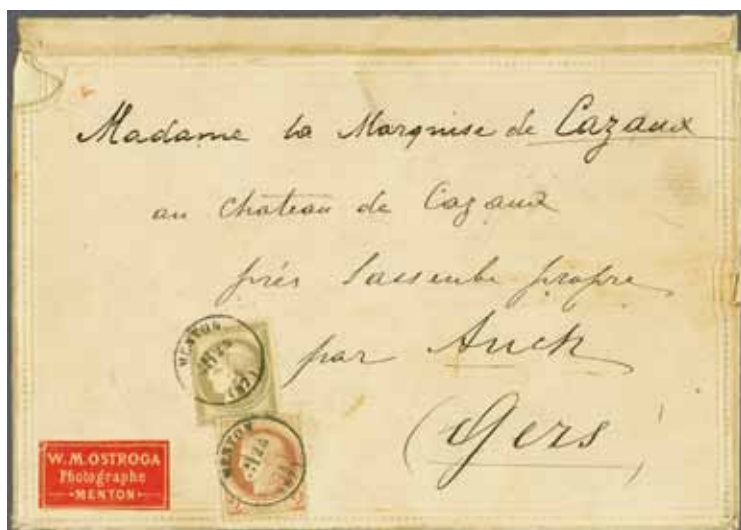 Madame la Marquise de Cazaux
au Château de Cazaux
près Lasseube propre
par Auch
(Gers)
MENTON
(87)
MENTON
W. M. OSTROGA
Photographe
MENTON